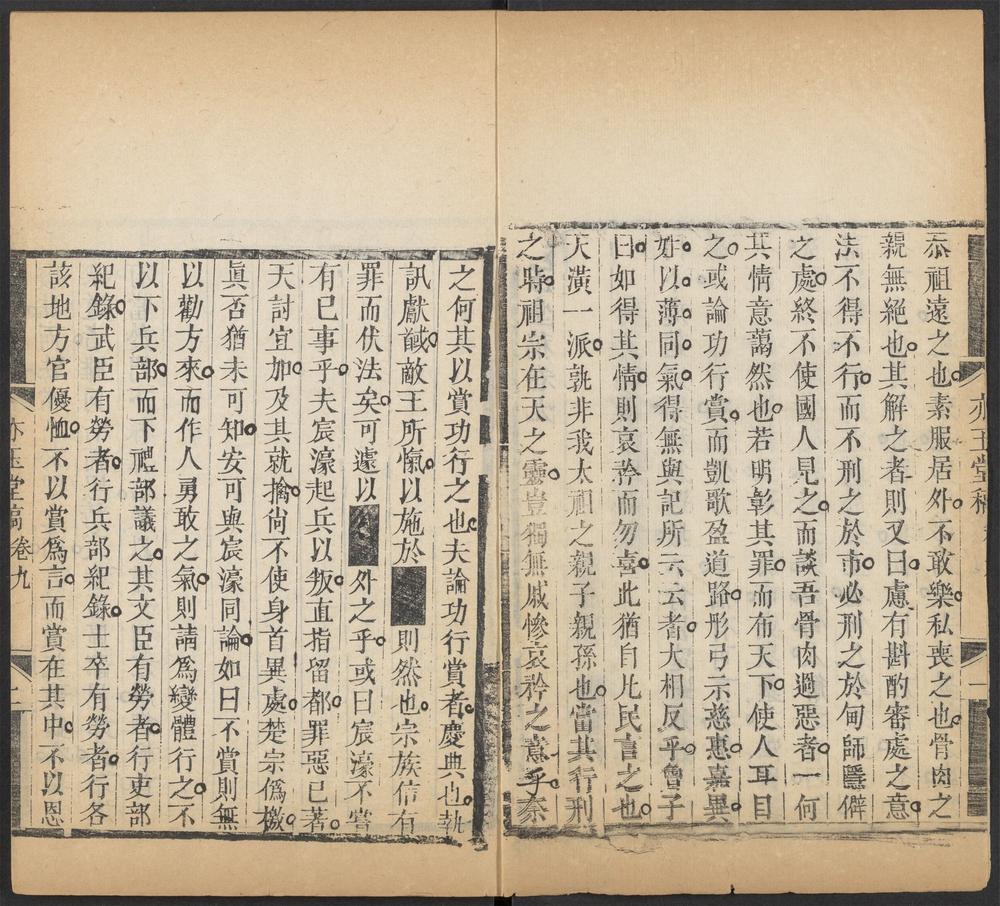 忝祖遠之也素服居外不敢樂私喪之也骨肉之
親無絕也其解之者則又曰慮有斟酌審處之意
法不得不行而不刑之於市必刑之於甸師隱僻
之處終不使國人見之而談吾骨肉過惡者一何
其情意藹然也若明彰其罪而布天下使人耳目
之或論功行賞而凱歌盈道路彤弓示慈惠嘉異
姓以薄同氣得無與記所云云者大相反乎曾子
曰如得其情則哀矜而勿喜此猶自凡民言之也
天潢一派孰非我太祖之親子親孫也當其行刑
之時祖宗在天之靈豈獨無戚慘哀矜之意乎柰
亦玉堂稿
之何其以賞功行之也夫論功行賞者慶典也執
訊獻馘敵王所愾以施於 則然也宗族信有
罪而伏法矣可遽以 外之乎或曰宸濠不嘗
有已事乎夫宸濠起兵以叛直指留都罪惡已著
天討宜加及其就擒尚不使身首異處楚宗僞檄
眞否猶未可知安可與宸濠同論如曰不賞則無
以勸方來而作人勇敢之氣則請爲變體行之不
以下兵部而下禮部議之其文臣有勞者行吏部
紀錄武臣有勞者行兵部紀錄士卒有勞者行各
該地方官優恤不以賞爲言而賞在其中不以恩
亦玉堂稿 卷九 二